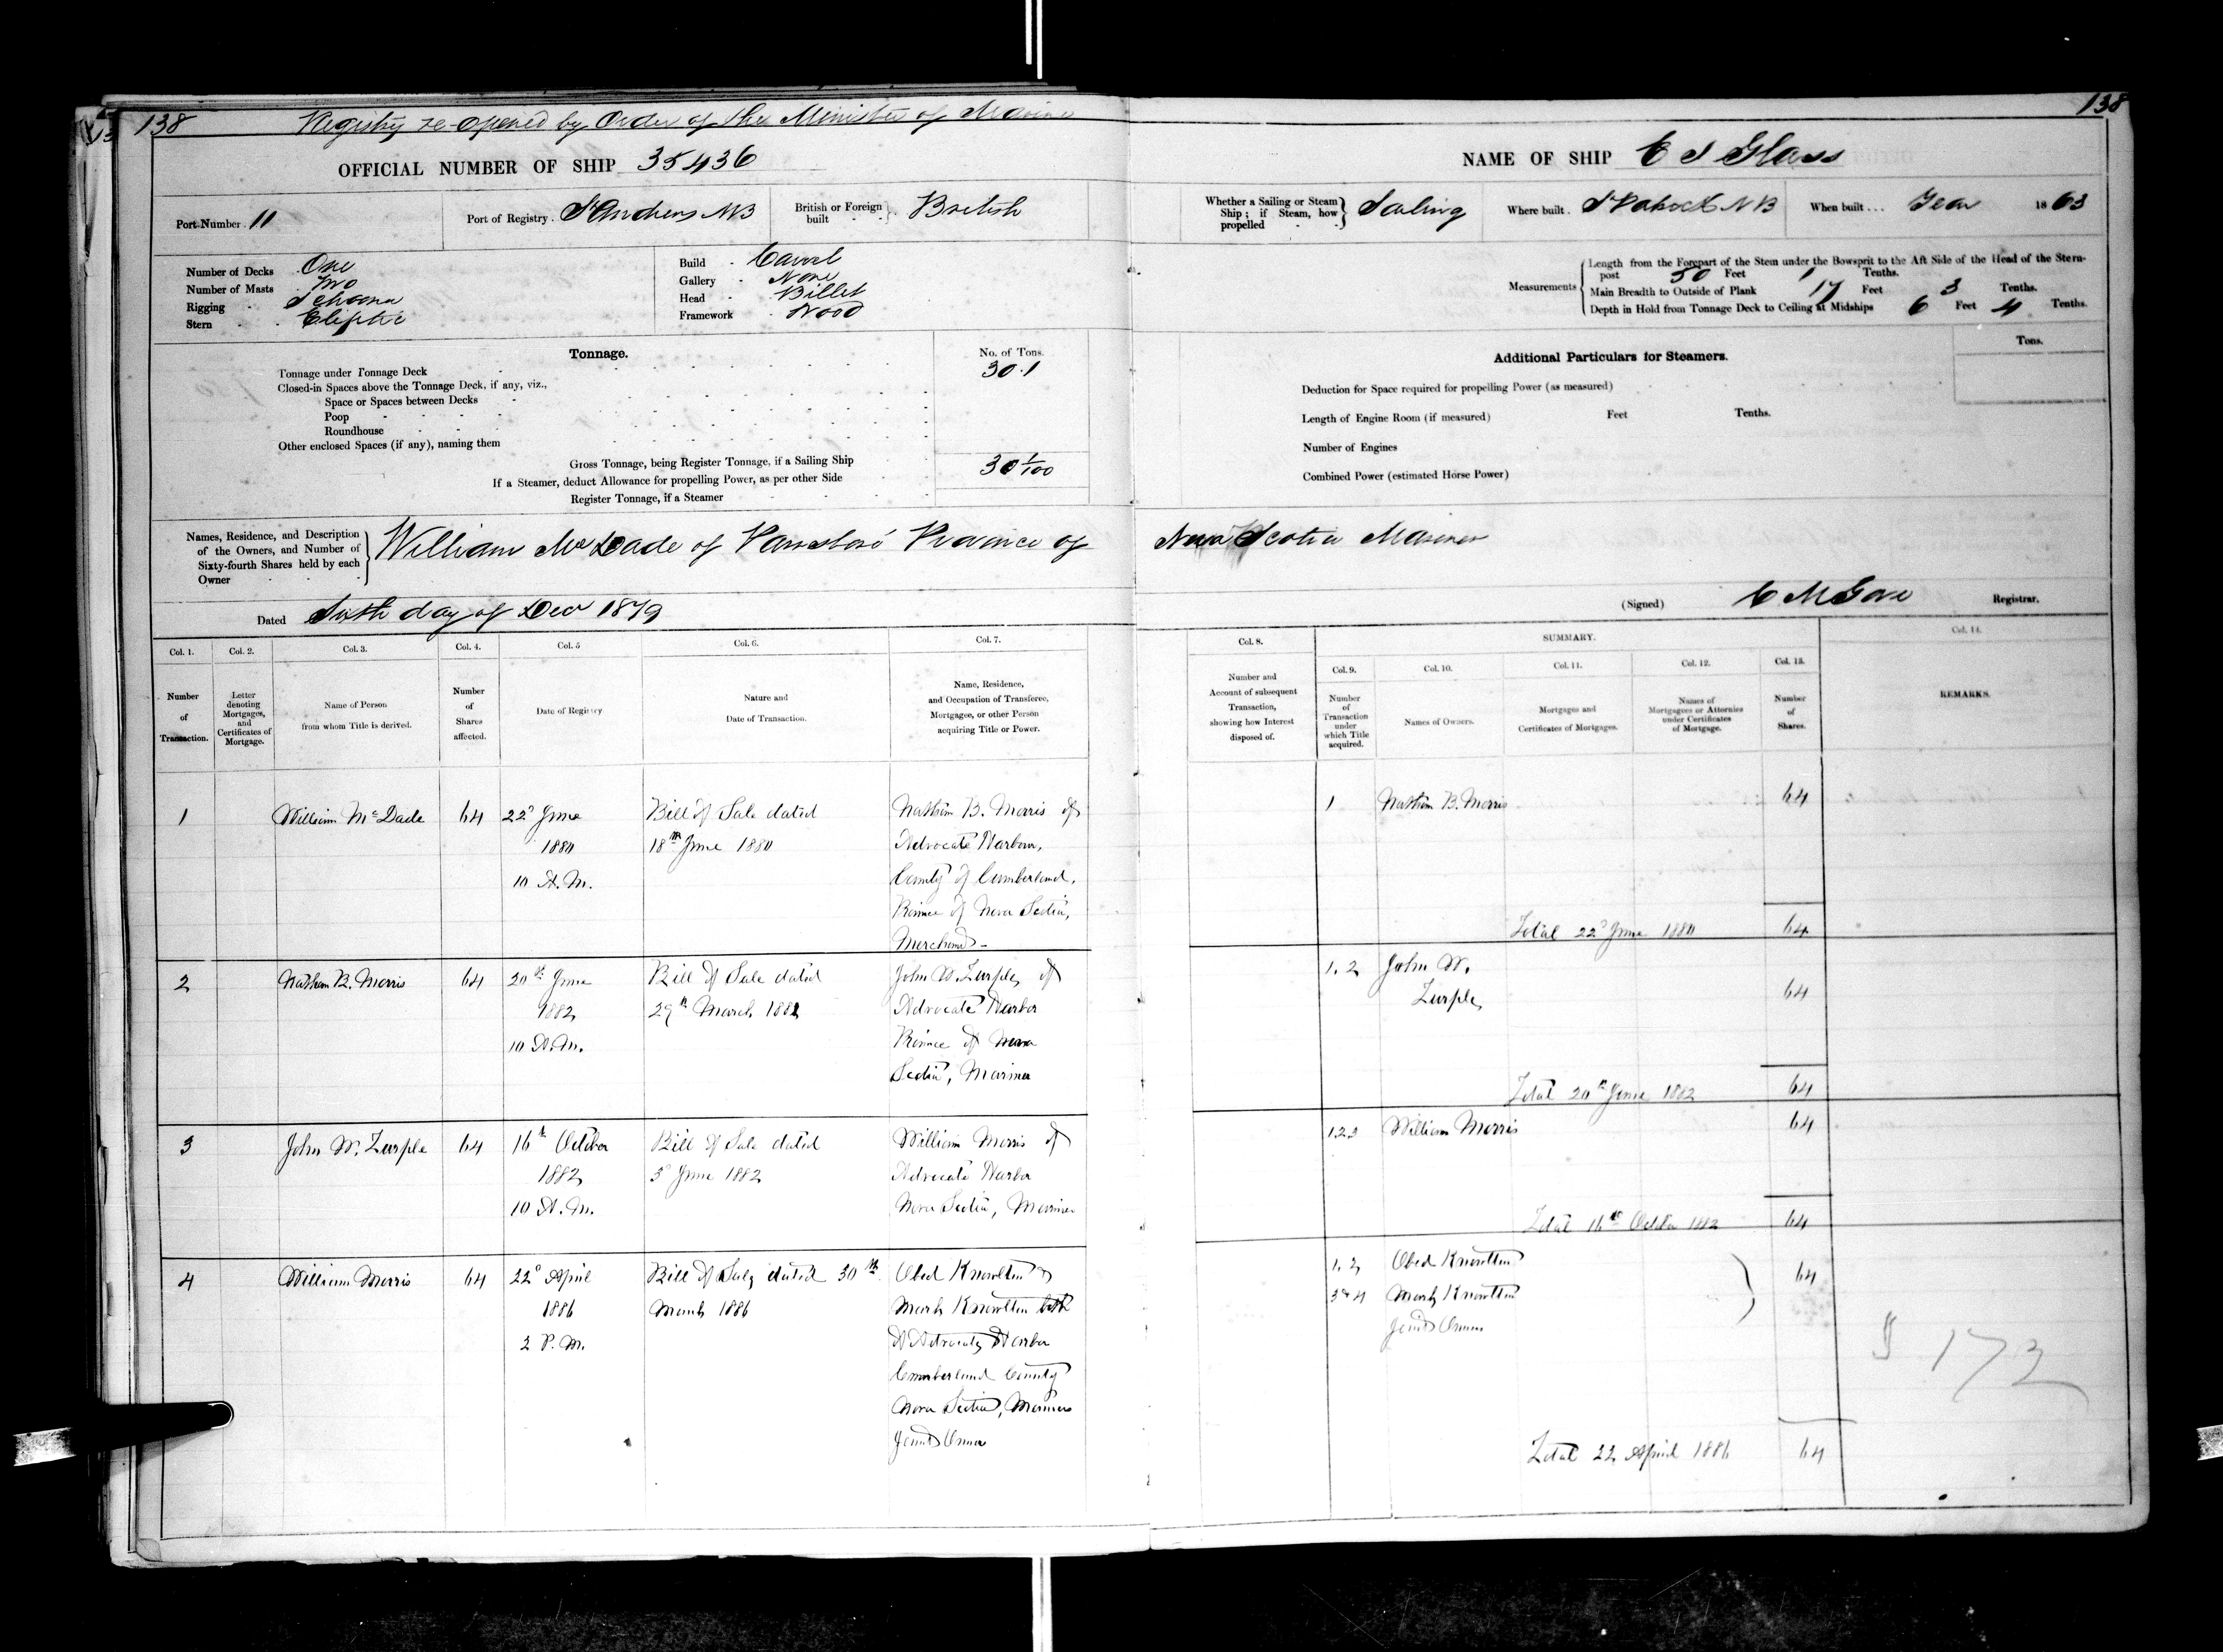 138 Registry re-opened by Order of the Minister of Marine
OFFICIAL NUMBER OF SHIP 35436
Port Number . 11
Port of Registry . St Andrews NB
British or Foreign built - - } . British
Number of Decks . One
Number of Masts . Two
Rigging - Schooner
Stern - . Eliptic
Build - Carvel
Gallery - None
Head - Billet
Framework - Wood
Tonnage.
No. of Tons.
Tonnage under Tonnage Deck 30.1
Closed-in Spaces above the Tonnage Deck, if any, viz.,
Space or Spaces between Decks
Poop
Roundhouse
Other enclosed Spaces (if any), naming them
Gross Tonnage, being Register Tonnage, if a Sailing Ship 30 1/100
If a Steamer, deduct Allowance for propelling Power, as per other Side
Register Tonnage, if a Steamer
Names, Residence, and Description of the Owners, and Number of Sixty-fourth Shares held by each Owner } William McDade of Parrsboro Province of
Dated Sixth day of Decr 1879
Col. 1. Number of Transaction.
Col. 2. Letter denoting Mortgages, and Certificates of Mortgage.
Col. 3. Name of Person from whom Title is derived.
Col. 4. Number of Shares affected.
Col. 5 Date of Registry
Col. 6. Nature and Date of Transaction.
Col. 7. Name, Residence, and Occupation of Transferee, Mortgagee, or other Person acquiring Title or Power.
1 William McDade 64 22d June Bill of Sale dated Nathan B. Morris of
1880 18th June 1880 Advocate Harbour,
10 A.M. County of Cumberland,
Province of Nova Scotia,
Merchant -
2 Nathan B. Morris 64 20th June Bill of Sale dated John W. of
1882 29th March 1882 Advocate Harbor
10 A.M. Province of Nova
Scotia, Mariner
3 John W. 64 16th October Bill of Sale dated William Morris of
1882 5 June 1882 Advocate Harbor
10 A.M. Nova Scotia, Mariner
4 William Morris 64 22d April Bill of Sale dated 30th Obed Knowlton &
1886 March 1886 Mark Knowlton both
2 P.M. of Advocate Harbor
Cumberland County
Nova Scotia, Mariners
Joint Owners
138
NAME OF SHIP E S Glass
Whether a Sailing or Steam Ship; if Steam, how propelled - - } Sailing
Where built . St Patrick NB
When built . . . Year 1863
Measurements { Length from the Forepart of the Stem under the Bowsprit to the Aft Side of the Head of the Stern-
post 50 Feet 1 Tenths.
Main Breadth to Outside of Plank 17 Feet 3 Tenths.
Depth in Hold from Tonnage Deck to Ceiling at Midships 6 Feet 4 Tenths.
Additional Particulars for Steamers.
Tons.
Deduction for Space required for propelling Power (as measured)
Length of Engine Room (if measured) Feet Tenths.
Number of Engines
Combined Power (estimated Horse Power)
Nova Scotia Mariner
(Signed) C M Gove Registrar.
SUMMARY.
Col. 8. Number and Account of subsequent Transaction, showing how Interest disposed of.
Col. 9. Number of Transaction under which Title acquired.
Col. 10. Names of Owners.
Col. 11. Mortgages and Certificates of Mortgages.
Col. 12. Names of Mortgagees or Attornies under Certificates of Mortgage.
Col. 13. Number of Shares.
Col. 14. REMARKS.
1 Nathan B. Morris 64
Total 22d June 1880 64
1.2 John W. 64
Total 20th June 1882 64
1.2.3 William Morris 64
Total 16th October 1882 64
1.2 Obed Knowlton 64
3 & 4 Mark Knowlton
Joint Owners
172
Total 22 April 1886 64